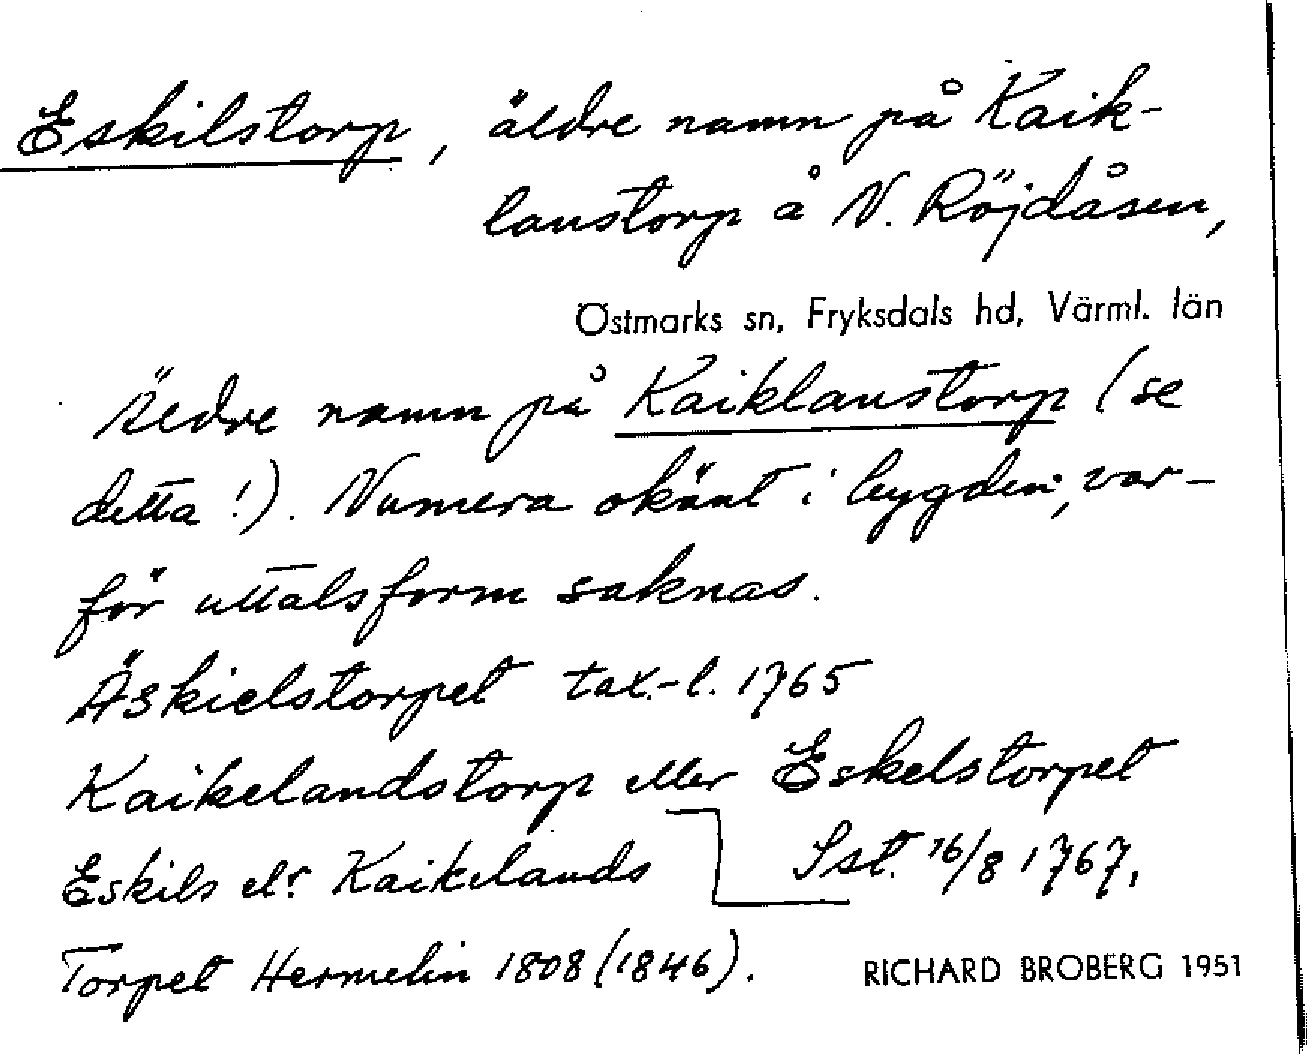 Eskilstorp, äldre namn på Kaik-
lanstorp å N. Röjdåsen,
Östmarks sn, Fryksdals hd, Värml. län
Äldre namn på Kaiklanstorp (se
detta!). Numera okänt i bygden, var-
för uttalsform saknas.
Äskielstorpet tax.-l. 1765
Kaikelandstorp eller Eskelstorpet
Sst. 16/8 1767.
Eskils elr Kaikelands
Torpet Hermelin 1808 (1846).
RICHARD BROBERG 1951